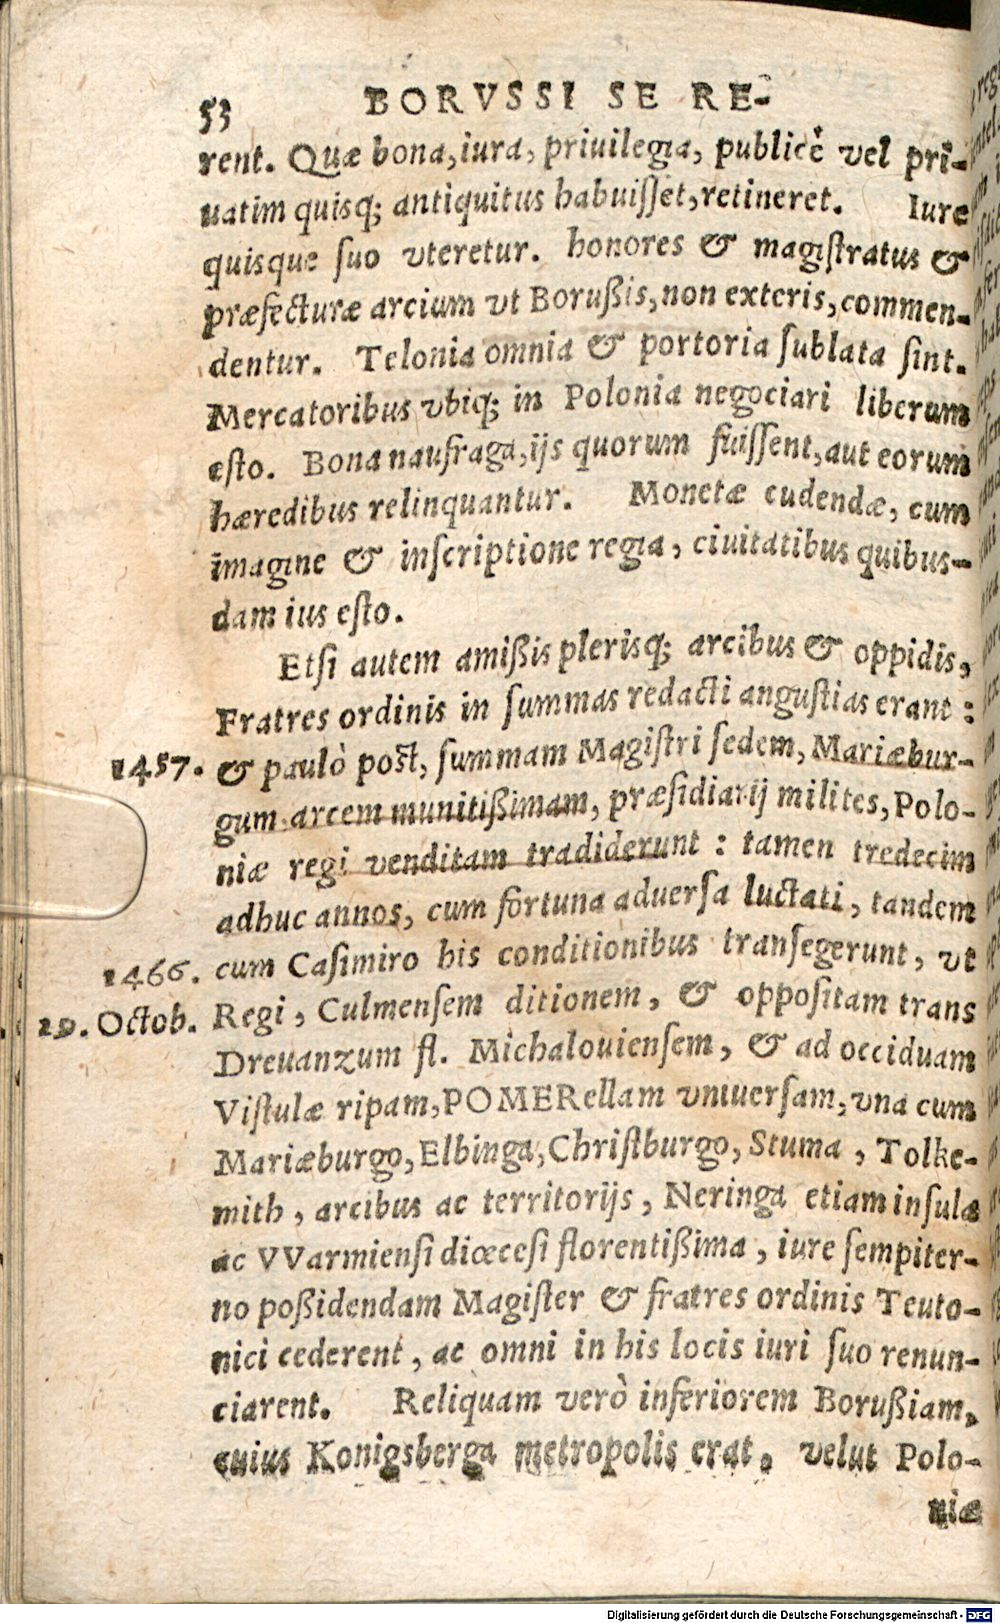 53 BORVSSI SE RE-
rent. Quæ bona, iura, priuilegia, publicè vel pri-
uatim quisq; antiquitus habuiſſet, retineret. Iure
quisque ſuo vteretur. honores & magiſtratus &
præfecturæ arcium vt Borußis, non exteris, commen-
dentur. Telonia omnia & portoria ſublata ſint.
Mercatoribus vbiq; in Polonia negociari liberum
eſto. Bona naufraga, ijs quorum fuiſſent, aut eorum
hæredibus relinquantur. Monetæ cudendæ, cum
imagine & inſcriptione regia, ciuitatibus quibus-
dam ius eſto.
Etſi autem amißis plerisq; arcibus & oppidis,
Fratres ordinis in ſummas redacti anguſtias erant:
1457. & paulò poſt, ſummam Magiſtri ſedem, Mariæbur-
gum arcem munitißimam, præſidiarij milites, Polo-
niæ regi venditam tradiderunt: tamen tredecim
adhuc annos, cum fortuna aduerſa luctati, tandem
1466. cum Caſimiro his conditionibus tranſegerunt, vt
19. Octob. Regi, Culmenſem ditionem, & oppoſitam trans
Dreuanzum fl. Michalouienſem, & ad occiduam
Viſtulæ ripam, POMERellam vniuerſam, vna cum
Mariæburgo, Elbinga, Chriſtburgo, Stuma, Tolke-
mith, arcibus ac territorijs, Neringa etiam inſula
ac VVarmienſi diœceſi florentißima, iure ſempiter-
no poßidendam Magiſter & fratres ordinis Teuto-
nici cederent, ac omni in his locis iuri ſuo renun-
ciarent. Reliquam verò inferiorem Borußiam,
cuius Konigsberga metropolis erat, velut Polo-
niæ
Digitalisierung gefördert durch die Deutsche Forschungsgemeinschaft - DFG